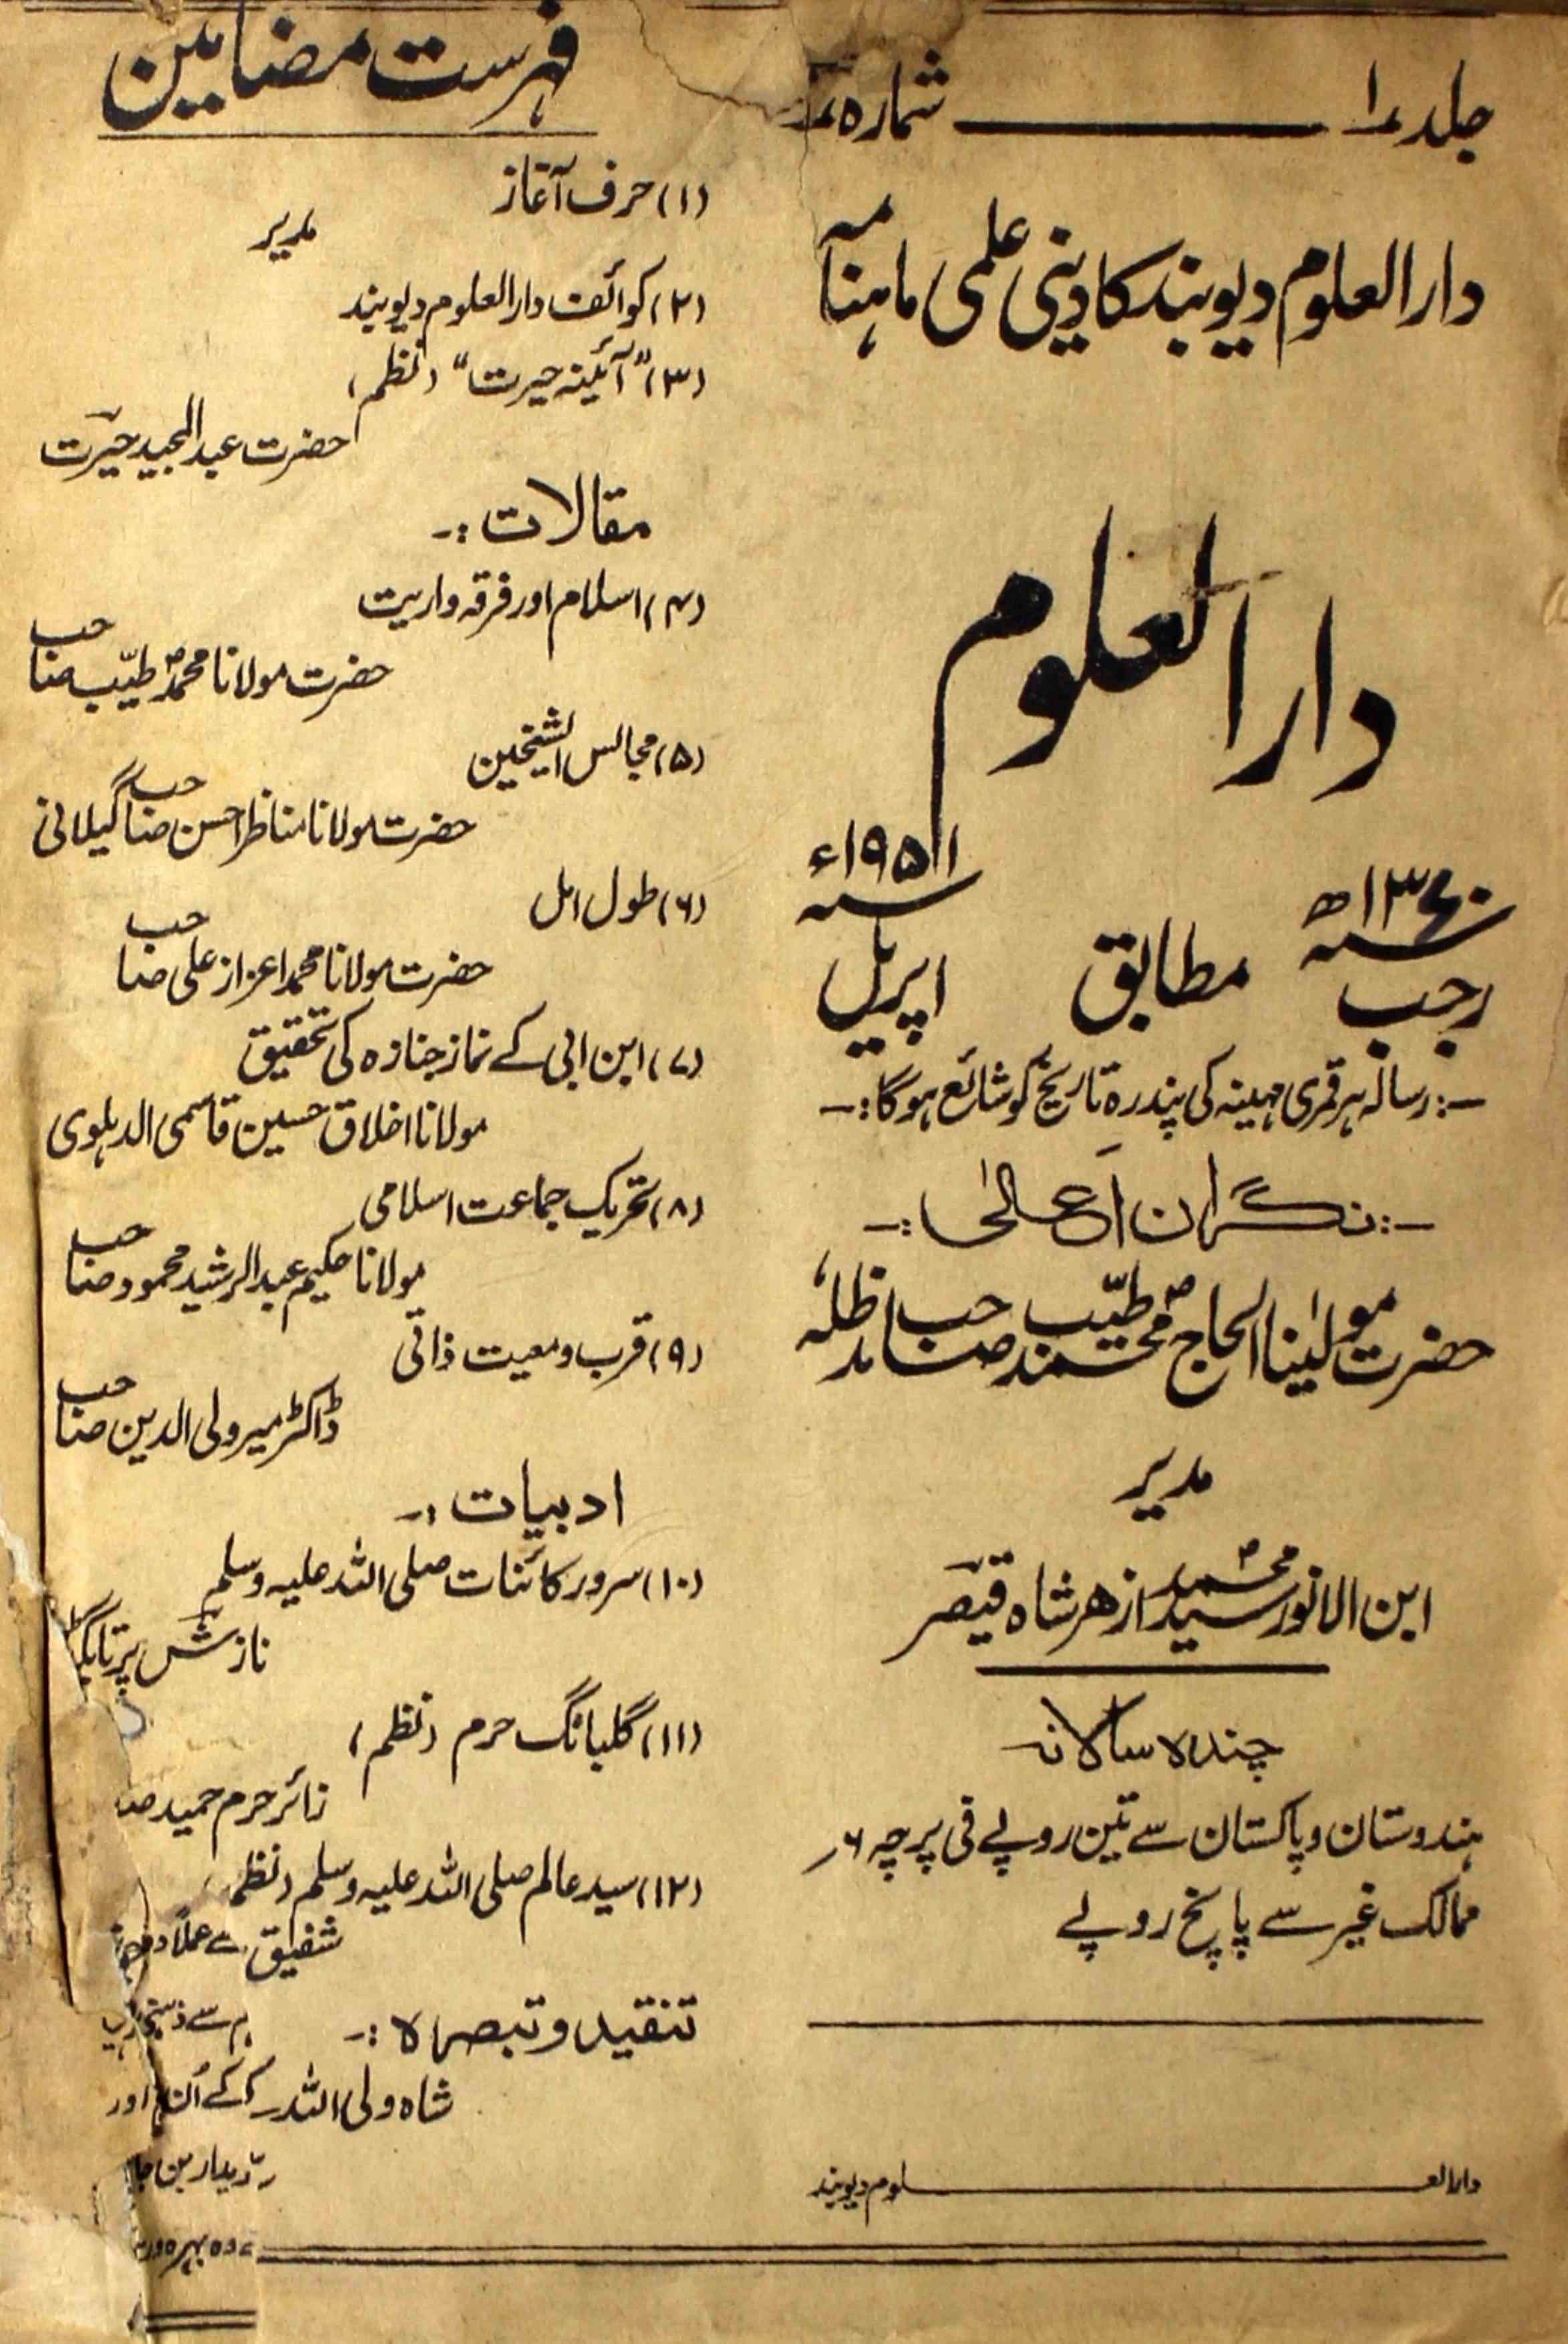 جلد ۱ ــــــ شمارہ
دارالعلوم دیوبند کا دینی علمی ماہنامہ
دارالعلوم
رجب ۱۳۷۰ھ مطابق اپریل ۱۹۵۱ء
-:رسالہ ہر قمری مہینہ کی پندرہ تاریخ کو شائع ہوگا:-
-: نگران اعلیٰ :-
حضرت مولیٰنا الحاج محمد طیّب صاحب مدظلہ
مدیر
ابن الانور سید محمد ازہر شاہ قیصر
چندہ سالانہ
ہندوستان و پاکستان سے تین روپے فی پرچہ ۶؍
ممالک غیر سے پانچ روپے
دارالعــــــلوم دیوبند
فہرست مضامین
(۱) حرف آغاز
مدیر
(۲) کوائف دارالعلوم دیوبند
(۳) "آئینہ حیرت" (نظم)
حضرت عبدالمجید حیرت
مقالات :-
(۴) اسلام اور فرقہ واریت
حضرت مولانا محمد طیّب صاحب
(۵) مجالس الشیخین
حضرت مولانا مناظر احسن صاحب گیلانی
(۶) طول امل
حضرت مولانا محمد اعزاز علی صاحب
(۷) ابن ابی کے نماز جنازہ کی تحقیق
مولانا اخلاق حسین قاسمی الدہلوی
(۸) تحریک جماعت اسلامی
مولانا حکیم عبدالرشید محمود صاحب
(۹) قرب و معیت ذاتی
ڈاکٹر میر ولی الدین صاحب
ادبیات :-
(۱۰) سرور کائنات صلی اللہ علیہ وسلم
نازش
(۱۱) گلبانگ حرم (نظم)
زائر حرم حمید
(۱۲) سید عالم صلی اللہ علیہ وسلم (نظم)
شفیق
تنقید و تبصرہ :-
شاہ ولی اللہ کے اور